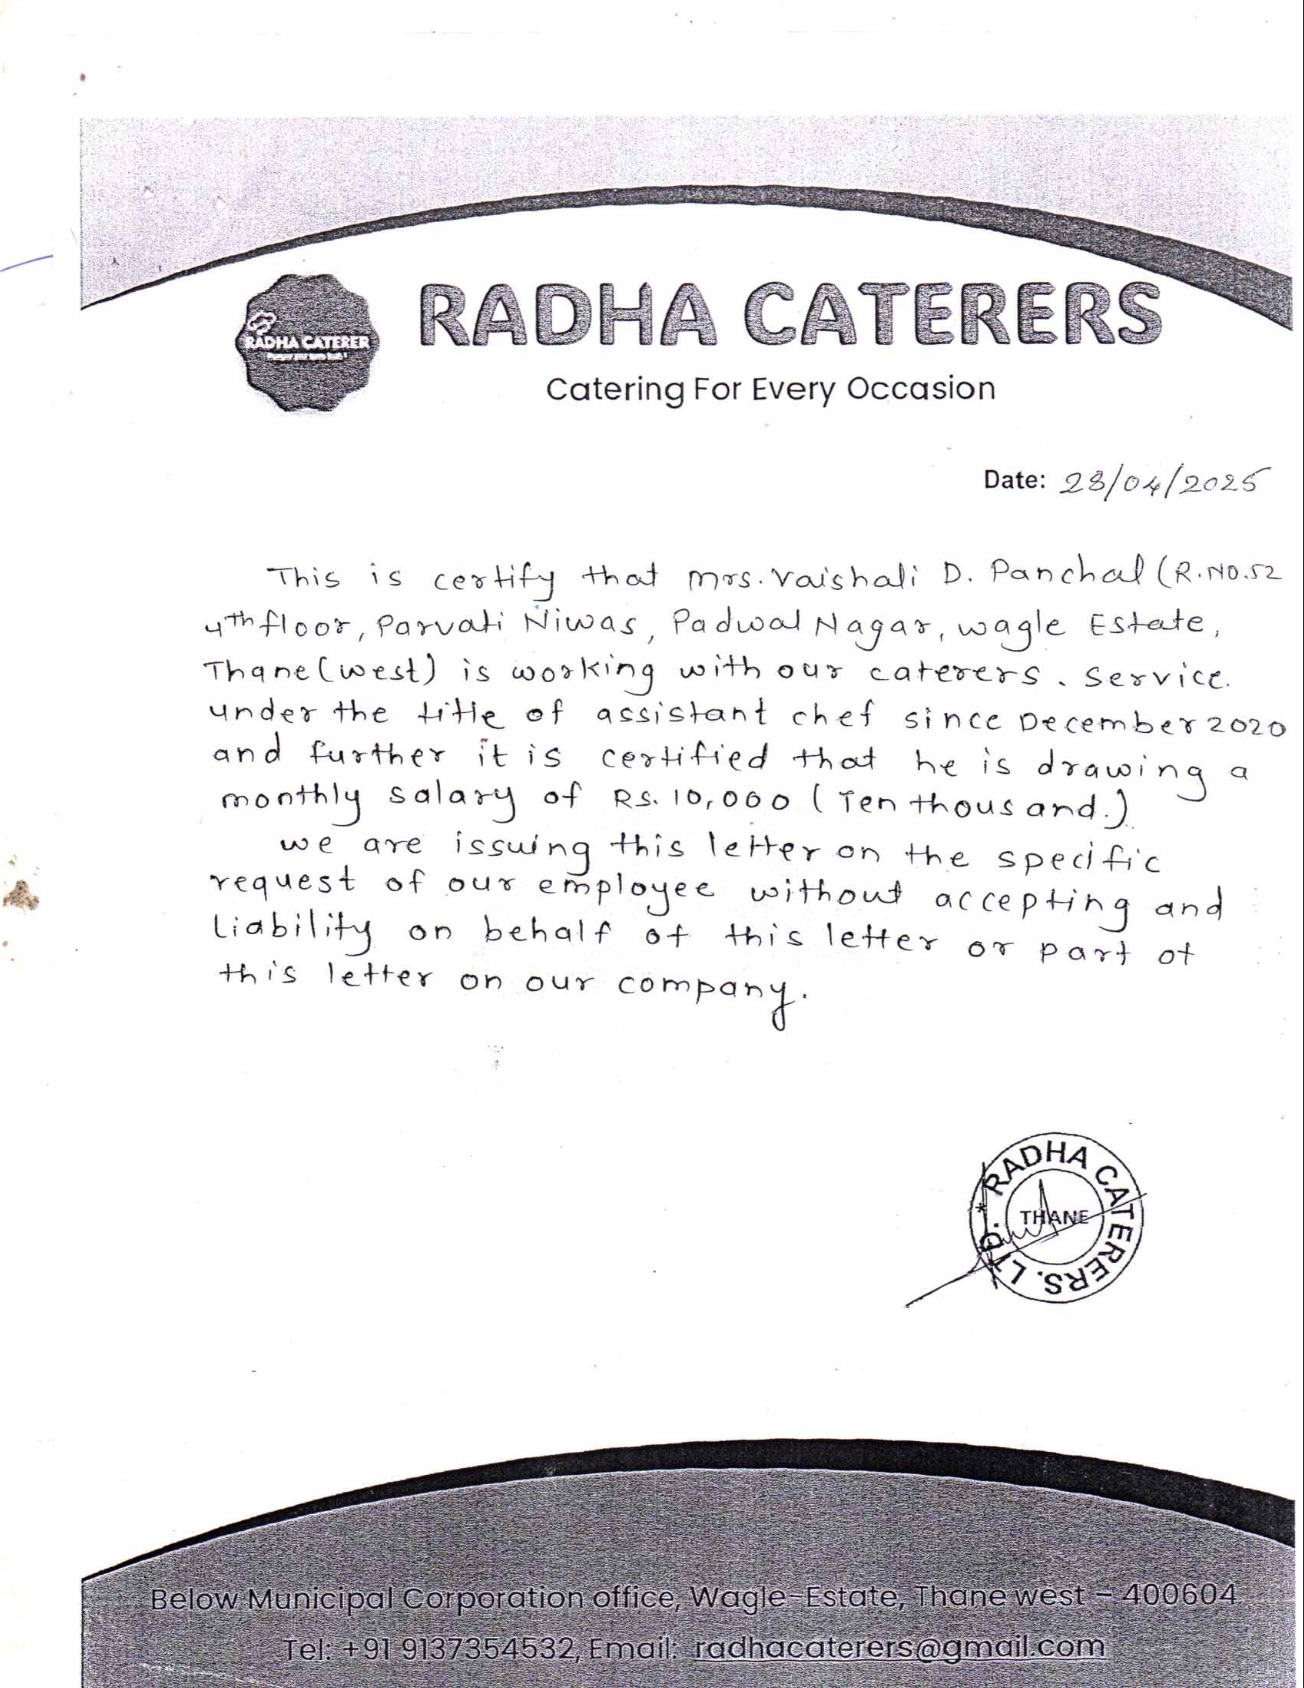 RADHA CATERER
RADHA CATERERS
Catering For Every Occasion
Date: 28/04/2025
This is certify that mrs. Vaishali D. Panchal (R.NO.52
4th floor, Parvati Niwas, Padwal Nagar, wagle Estate,
Thane (west) is working with our caterers. Service.
under the title of assistant chef since December 2020
and further it is certified that he is drawing a
monthly salary of Rs. 10,000 (Ten thousand.)
we are issuing this letter on the specific
request of our employee without accepting and
Liability on behalf of this letter or part of
this letter on our company.
* RADHA CATERERS. LTD.
THANE
Below Municipal Corporation office, Wagle-Estate, Thane west – 400604
Tel: +91 9137354532, Email: radhacaterers@gmail.com